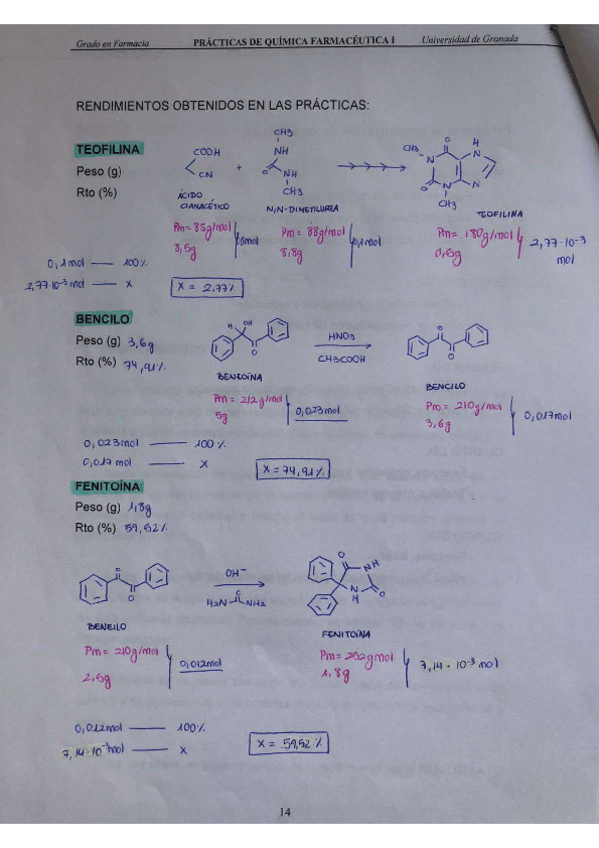 Grado en Farmacia PRÁCTICAS DE QUÍMICA FARMACÉUTICA I Universidad de Granada
RENDIMIENTOS OBTENIDOS EN LAS PRÁCTICAS:
TEOFILINA
Peso (g)
Rto (%)
COOH
CN
+
CH3
NH
O
NH
CH3
ÁCIDO
CIANACÉTICO
N,N-DIMETILUREA
O
H
CH3
N
N
O
N
N
CH3
TEOFILINA
Pm = 85g/mol
8,5g
Pm = 88g/mol
8,8g
0,1mol
Pm = 180g/mol
2,77·10-3
mol
0,1 mol — 100%
2,77·10-3 mol — x
x = 2,77%
BENCILO
Peso (g) 3,6g
Rto (%) 74,91%
H
OH
O
HNO3
CH3COOH
O
O
BENZOÍNA
BENCILO
Pm = 212g/mol
5g
0,023mol
Pm = 210g/mol
3,6g
0,017mol
0,023mol — 100%
0,017 mol — x
x = 74,91%
FENITOÍNA
Peso (g) 1,8g
Rto (%) 59,52%
O
O
OH-
H2N
O
NH2
O
NH
N
H
O
FENITOÍNA
Pm = 210g/mol
2,5g
0,012mol
Pm = 252g/mol
1,8g
7,14 · 10-3 mol
0,012mol — 100%
7,14·10-3mol — x
x = 59,52%
14